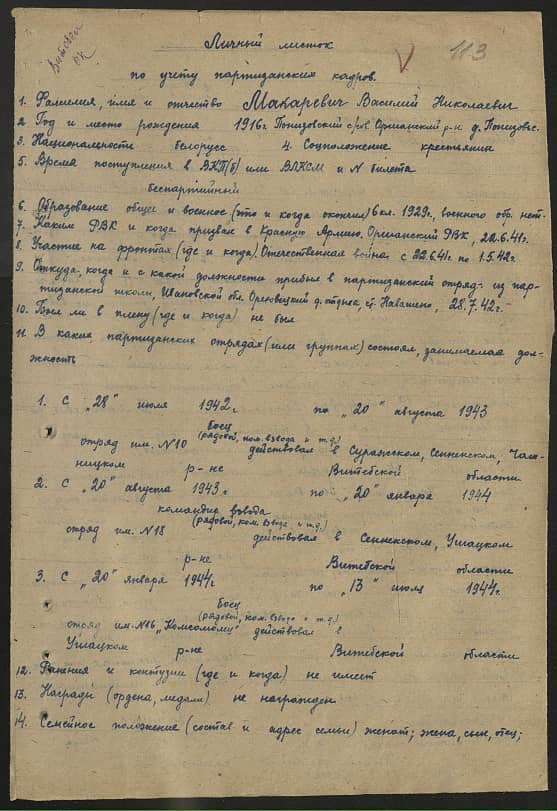 Витебск
ОК
113
Личный листок
по учету партизанских кадров.
1. Фамилия, имя и отчество Макаревич Василий Николаевич
2. Год и место рождения 1916г Понизовский с/сов Оршанский р-н д. Понизовье.
3. Национальности белорус 4. Соцположение крестьянин
5. Время поступления в ВКП(б) или ВЛКСМ и N билета
беспартийный
6. Образование общее и военное (что и когда окончил) 6 кл. 1929г., военного обр. нет.
7. Каким РВК и когда призван в Красную Армию. Оршанский РВК, 28.6.41г.
8. Участие на фронтах (где и когда). Отечественная война с 22.6.41г. по 1.5.42г.
9. Откуда, когда и с какой должности прибыл в партизанский отряд- из пар-
тизанской школы, Ивановской обл. д. отдыха, ст. Навашено, 28.7.42г.-
10. Был ли в плену (где и когда) не был
11. В каких партизанских отрядах (или группах) состоял, занимаемая дол-
жность
1. С „28" июля 1942г. по „20" августа 1943
боец
(рядовой, ком. взвода и т.д.)
отряд им. N10 действовал в Суражском, Сенненском, Чаш-
никком р-не Витебской области
2. С „20" августа 1943.г по „20" января 1944
командир взвода
(рядовой, ком. взвода и т.д.)
отряд им. N18 действовал в Сенненском, Ушацком
р-не Витебской области
3. С „20" января 1944г. по „13" июля 1944г.
боец
(рядовой, ком. взвода и т.д.)
отряд им. N16 „Комсомолец" действовал в
Ушацком р-не Витебской области
12. Ранения и контузии (где и когда) не имеет
13. Награды (ордена, медали) не награжден.
14. Семейное положение (состав и адрес семьи) женат; жена, сын, отец;